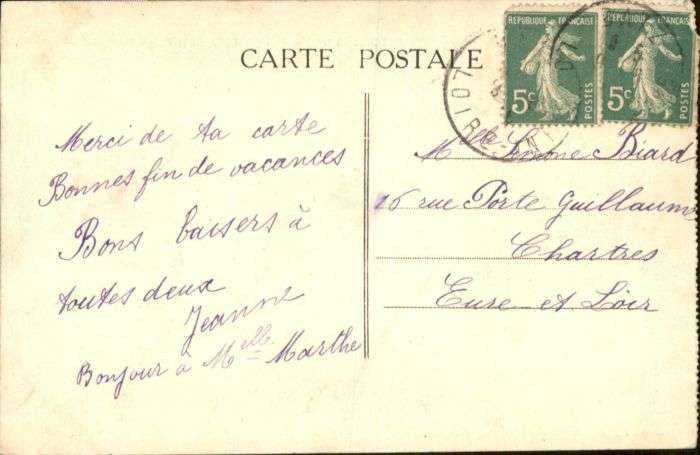 CARTE POSTALE
RÉPUBLIQUE FRANÇAISE
5c
POSTES
RÉPUBLIQUE FRANÇAISE
5c
POSTES
107
Merci de ta carte
Bonnes fin de vacances
Bons baisers à
toutes deux
Jeanne
Bonjour à Melle Marthe
Melle Simone Biard
26 rue Porte Guillaume
Chartres
Eure et Loir